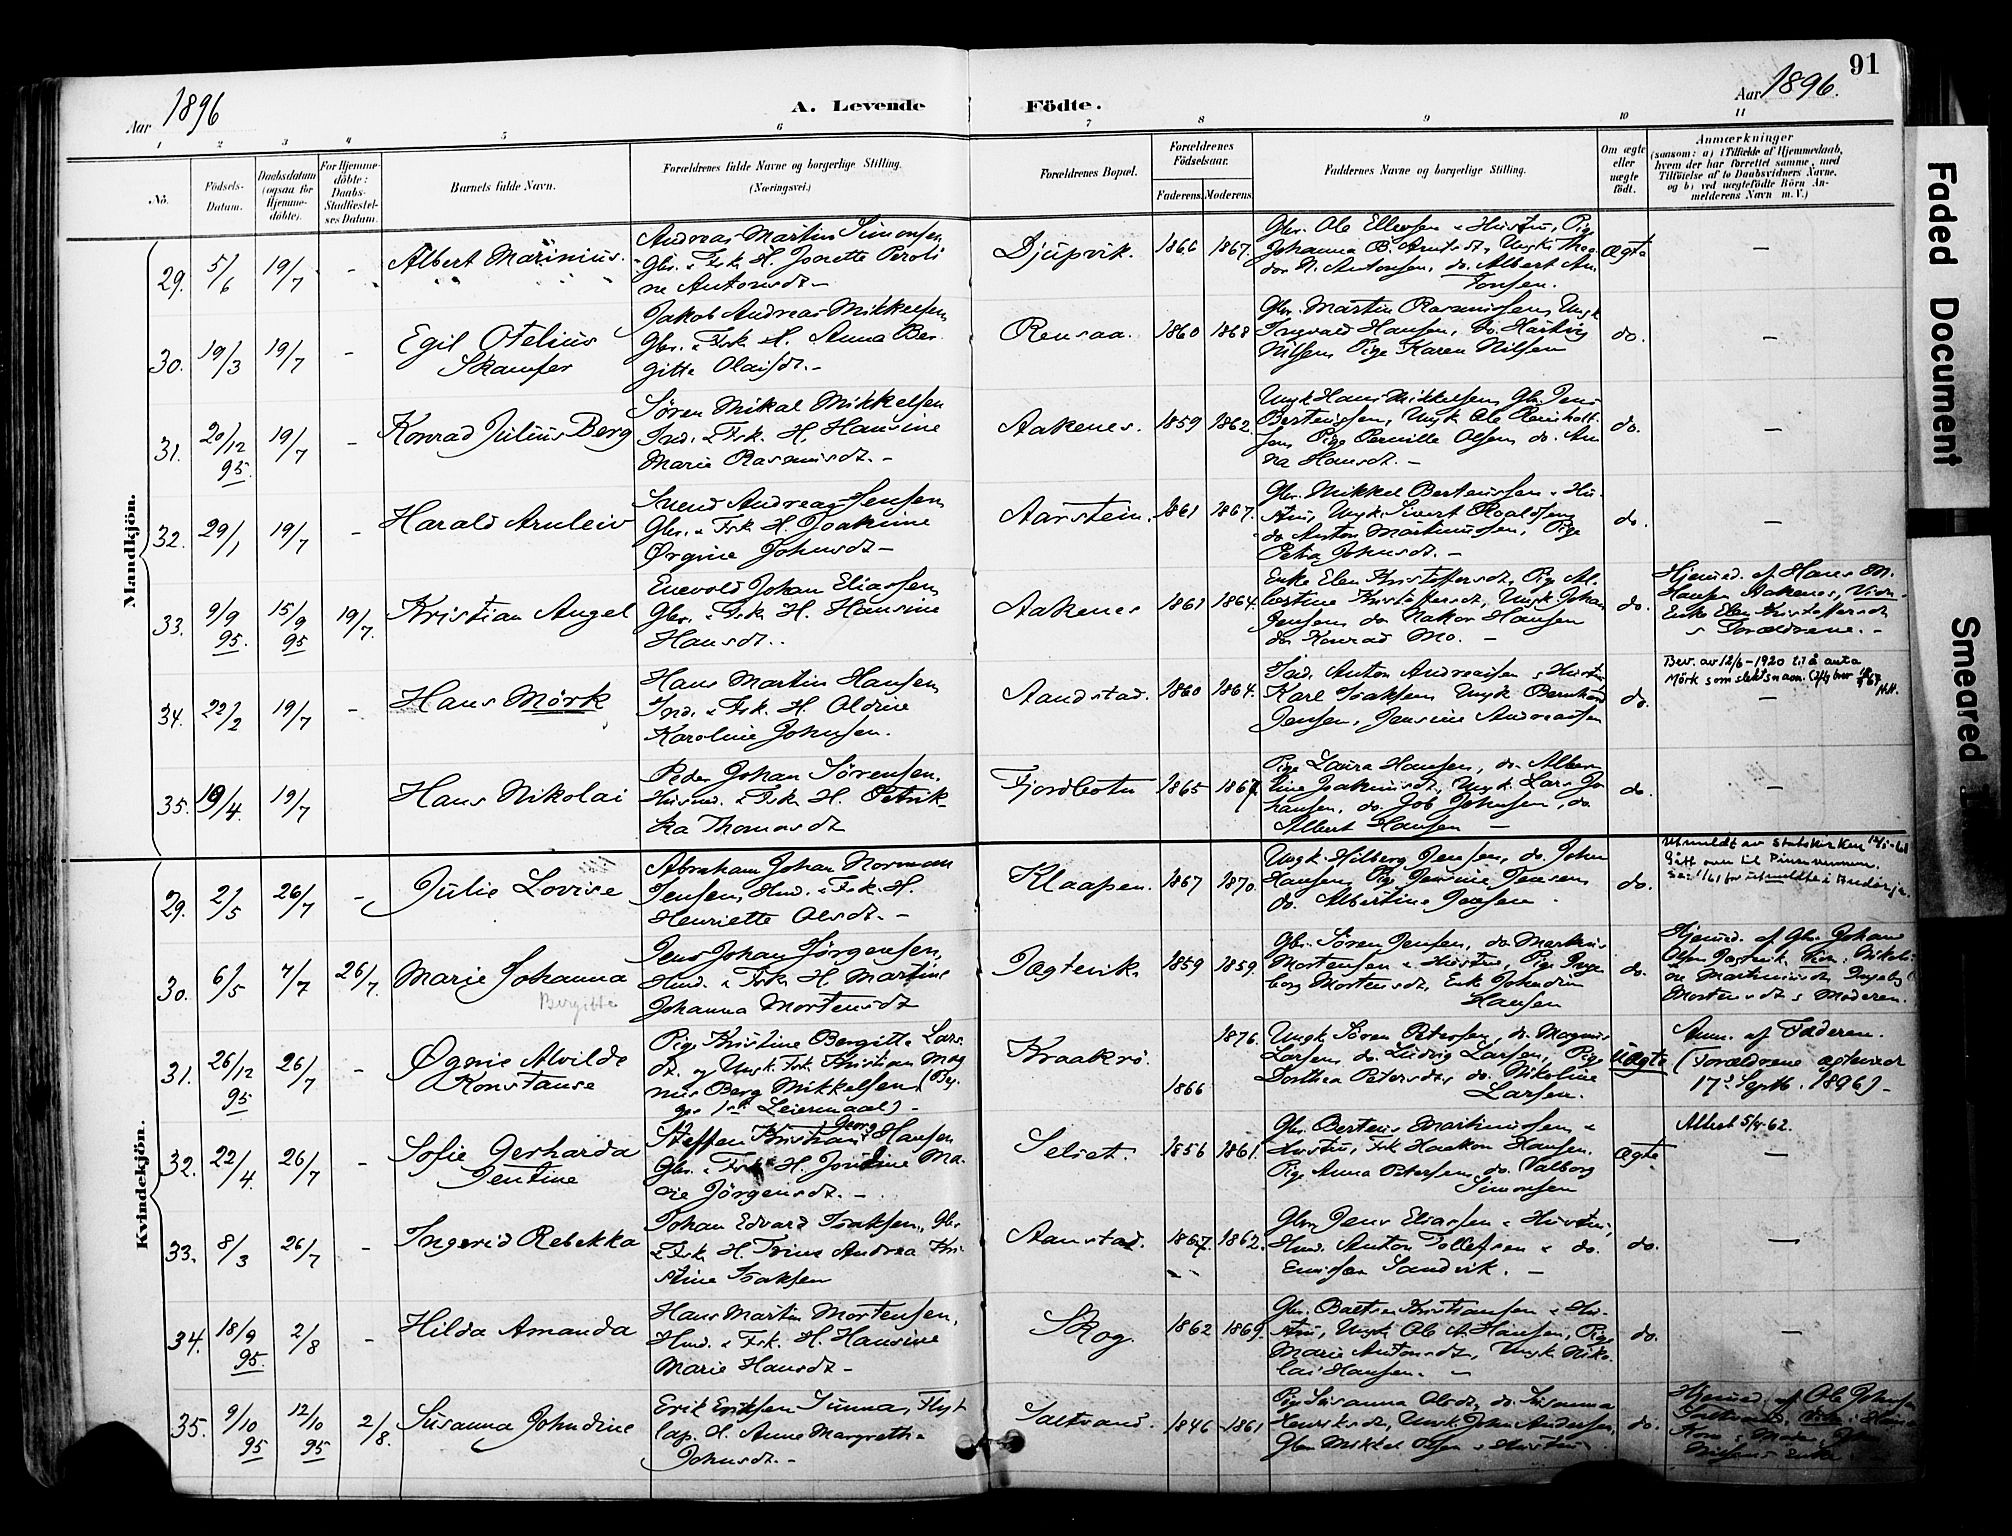 91
Aar 1896
A. Levende Födte.
Aar 1896.
1 2 3 4 5 6 7 8 9 10 11
No.
Födsels-Datum.
Daabsdatum (ogsaa for Hjemmedöbte).
For Hjemmedöbte: Daabs-Stadfæstelses Datum.
Barnets fulde Navn.
Forældrenes fulde Navne og borgerlige Stilling.
(Næringsvei.)
Forældrenes Bopæl.
Forældrenes Födselsaar.
Faderens. Moderens.
Faddernes Navne og borgerlige Stilling.
Om ægte eller uægte födt.
Anmærkninger
(saasom: a) i Tilfælde af Hjemmedaab, hvem der har forrettet samme, med Tilföielse af to Daabsvidners Navne, og b) ved uægtefödte Börn Anmelderens Navn m. V.)
Mandkjön.
29. 5/6 19/7 - Albert Marinius.
Andreas Martin Simonsen
Gbr. & Fsk. H. Jonette Peroline Antonsdt. -
Djupvik. 1866 1867.
Gbr. Ole Ellevsen & Hustru, Pige
Johanna B. Arntsdt, Ungk. Theodor N. Antonsen, do. Albert Antonsen.
Ægte -
30. 19/3 19/7 - Egil Otelius Skamfer
Jakob Andreas Mikkelsen
Gbr. & Fsk. H. Anna Bergitte Olaisdt. -
Rensaa. 1860 1868
Gbr. Martin Rasmussen, Ungk.
Ingvald Hansen, do. Hartvig
Nilsen, Pige Karen Nilsen
do. -
31. 20/12 95. 19/7 - Konrad Julius Berg
Sören Mikal Mikkelsen
Ind. & Fsk. H. Hansine
Marie Rasmusdt. -
Aakenes. 1859 1862.
Ungk. Hans Mikkelsen, Gbr. Jens
Berteussen, Ungk. Ole Reinholtsen, Pige Pernille Olsen, do. Anna Hansdt. -
do. -
32. 29/1 19/7 - Harald Arnleiv
Svend Andreas Jensen
Gbr. & Fsk. H. Joakime
Ørgine Johnsdt -
Aarstein. 1861 1867.
Gbr. Mikkel Berteussen & Hustru, Ungk. Sivert Roaldsen,
do. Anton Martinussen, Pige
Petra Johnsdt. -
do. -
33. 9/9 95. 15/9 95 19/7. Kristian Angel
Enevold Johan Eliassen
Gbr. & Fsk. H. Hansine
Hansdt. -
Aakenes 1861 1864.
Enke Elen Kristoffersdt, Pige Albertine Kristoffersdt, Ungk. Johan
Jensen, do. Hakon Hansen
do. Konrad Mo. -
do.
Hjemmed. af Hans M.
Hansen Aakenes, Vidn.
Enke Elen Kristoffersdt
& Forældrene. -
34. 22/2 19/7 - Hans Mörk
Hans Martin Hansen
Ind. & Fsk. H. Oldine
Karoline Johnsen.
Aandstad. 1860 1864.
Ind. Anton Andreassen & Hustru
Karl Isaksen, Ungk. Bernhard
Jensen, Jensine Andreassen
do.
Bev. av 12/6-1920 til å anta
Mörk som slektsnavn.
-
35. 19/4. 19/7 Hans Nikolai
Peder Johan Sörensen.
Husmd. & Fsk. H. Petrikka Thomasdt
Fjordbotn 1865 1867.
Pige Laura Hansen, do. Albertine Joakimsdt, Ungk. Lars Johansen, do. Job Johnsen, do.
Albert Hansen -
do. -
Kvindekjön.
29. 2/5 26/7 - Julie Lovise
Abraham Johan Norman
Jensen, Hmd. & Fsk. H.
Henriette Olsdt. -
Klaapen. 1867 1870.
Ungk. Hilberg Jensen, do. John
Hansen, Pige Jensine Jensen
do. Albertine Jensen.
do.
Utmeldt av statskirken
Gått over til Pinsevennene.
30. 6/5 7/7 26/7. Marie Johanna
Bergitte
Jens Johan Jørgensen,
Hmd. & Fsk. H. Martine
Johanna Mortensdt
Jægtevik 1859 1859.
Gbr. Sören Jensen, do. Markus
Mortensen & Hustru, Pige Ingeborg Mortensdt, Enk. Johndine
Hansen
do.
Hjemmed. af Gbr. Johan
Olsen Jægtevik, Vidn. Nikoline Martinusdt, Ingeb.
Mortensdt & Moderen.
31. 26/12 95 26/7 - Øgnie Alvilde Konstanse
Pige Kristine Bergitte Larsdt. og Ungk. Fsk. Kristian Magnus Berg Mikkelsen (Begge 1ste Leiermaal) -
Kraakrö. 1876. 1866
Ungk. Sören Petersen, do. Magnus
Larsen, do. Ludvig Larsen, Pige
Dorthea Petersdt, do. Nikoline
Larsen.
Uægte
Anm. af Faderen.
(Forældrene ægteviede
17de Septb. 1896) -
32. 22/4. 26/7 - Sofie Gerharda Jentine
Steffen Kristian Georg Hansen
Gbr. & Fsk. H. Jordine Marie Jörgensdt. -
Selset. 1856 1861.
Gbr. Berteus Martinussen &
Hustru, Fsk. Haakon Hansen,
Pige Anna Petersen, do. Valborg
Simonsen
Ægte
Attest 5/4-62.
-
33. 8/3 26/7 - Ingerid Rebekka
Johan Edvard Isaksen, Gbr.
& Fsk. H. Trine Andrea Kristine Isaksen
Aanstad. 1867. 1862.
Gbr. Jens Eliassen & Hustru,
Hmd. Anton Tollefsen & do.
Sandvik. -
do. -
34. 18/9 95. 2/8 - Hilda Amanda
Hans Martin Mortensen,
Hmd. & Fsk. H. Hansine
Marie Hansdt -
Skog. 1862 1869.
Gbr. Kristiansen & Hustru, Ungk. Ole A. Hansen, Pige
Marie Antonsdt, Ungk. Nikolai Hansen. -
do. -
35. 9/10 95 12/10 95 2/8. Susanna Johndine
Erik Eriksen Sunna, Flytlap. H. Anne Margrethe
Johnsdt. -
Saltvand. 1846 1861
Pige Susanna Olsdt, do. Susanna
Henriksdt, Ungk. John Andersen,
Gbr. Mikkel Olsen & Hustru
do.
Hjemmed. af Ole Johnsen
Saltvand,
Faded Document
Smeared